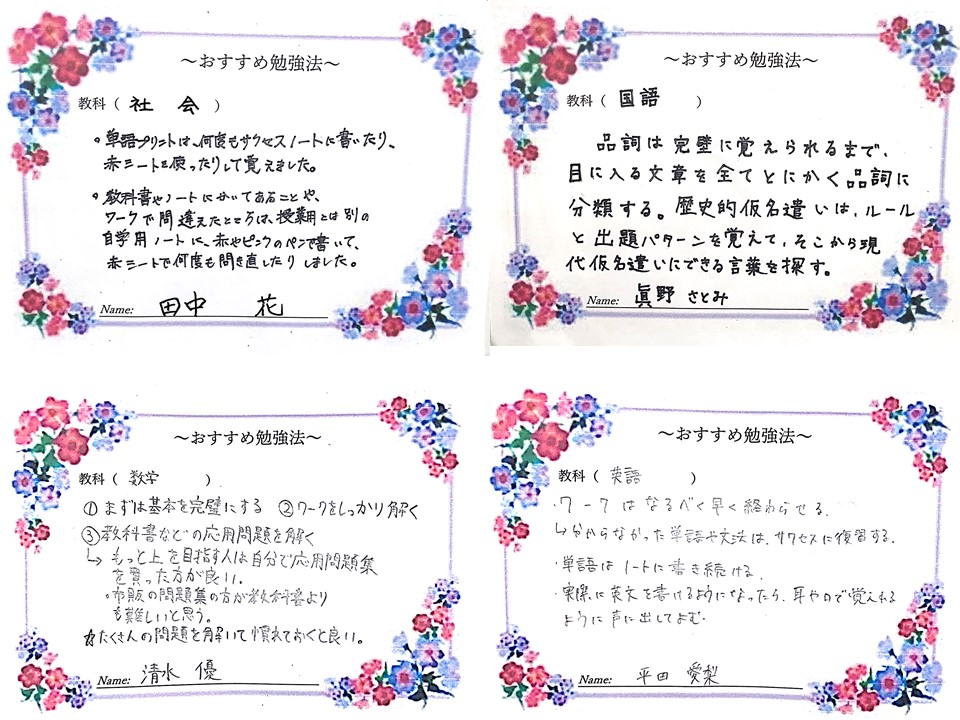 ～おすすめ勉強法～
教科（ 社 会 ）
・単語プリントは、何度もサクセスノートに書いたり、
赤シートを使ったりして覚えました。
・教科書やノートにかいてあることや、
ワークで間違えたところは、授業用とは別の
自学用ノートに、赤やピンクのペンで書いて、
赤シートで何度も聞き直したりしました。
Name: 田中 花
～おすすめ勉強法～
教科（ 国語 ）
品詞は完璧に覚えられるまで、
目に入る文章を全てとにかく品詞に
分類する。歴史的仮名遣いは、ルール
と出題パターンを覚えて、そこから現
代仮名遣いにできる言葉を探す。
Name: 眞野 さとみ
～おすすめ勉強法～
教科（ 数学 ）
① まずは基本を完璧にする ②ワークをしっかり解く
③教科書などの応用問題を解く
↳ もっと上を目指す人は自分で応用問題集
を買った方が良い。
・市販の問題集の方が教科書より
も難しいと思う。
たくさんの問題を解いて慣れておくと良い。
Name: 清水 優
～おすすめ勉強法～
教科（ 英語 ）
・ワークはなるべく早く終わらせる。
↳分からなかった単語や文法は、サクセスに復習する。
・単語はノートに書き続ける。
・実際に英文を書けるようになったら、耳や口で覚えれる
ように声に出してよむ。
Name: 平田 愛梨